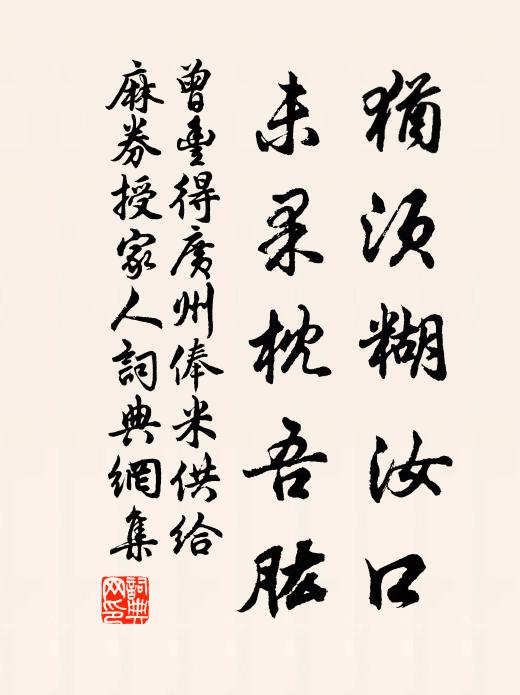 猶須糊汝口
未果枕吾肱
曾豐得廣州俸米供給
麻券授家人詞典網集
詞典網印